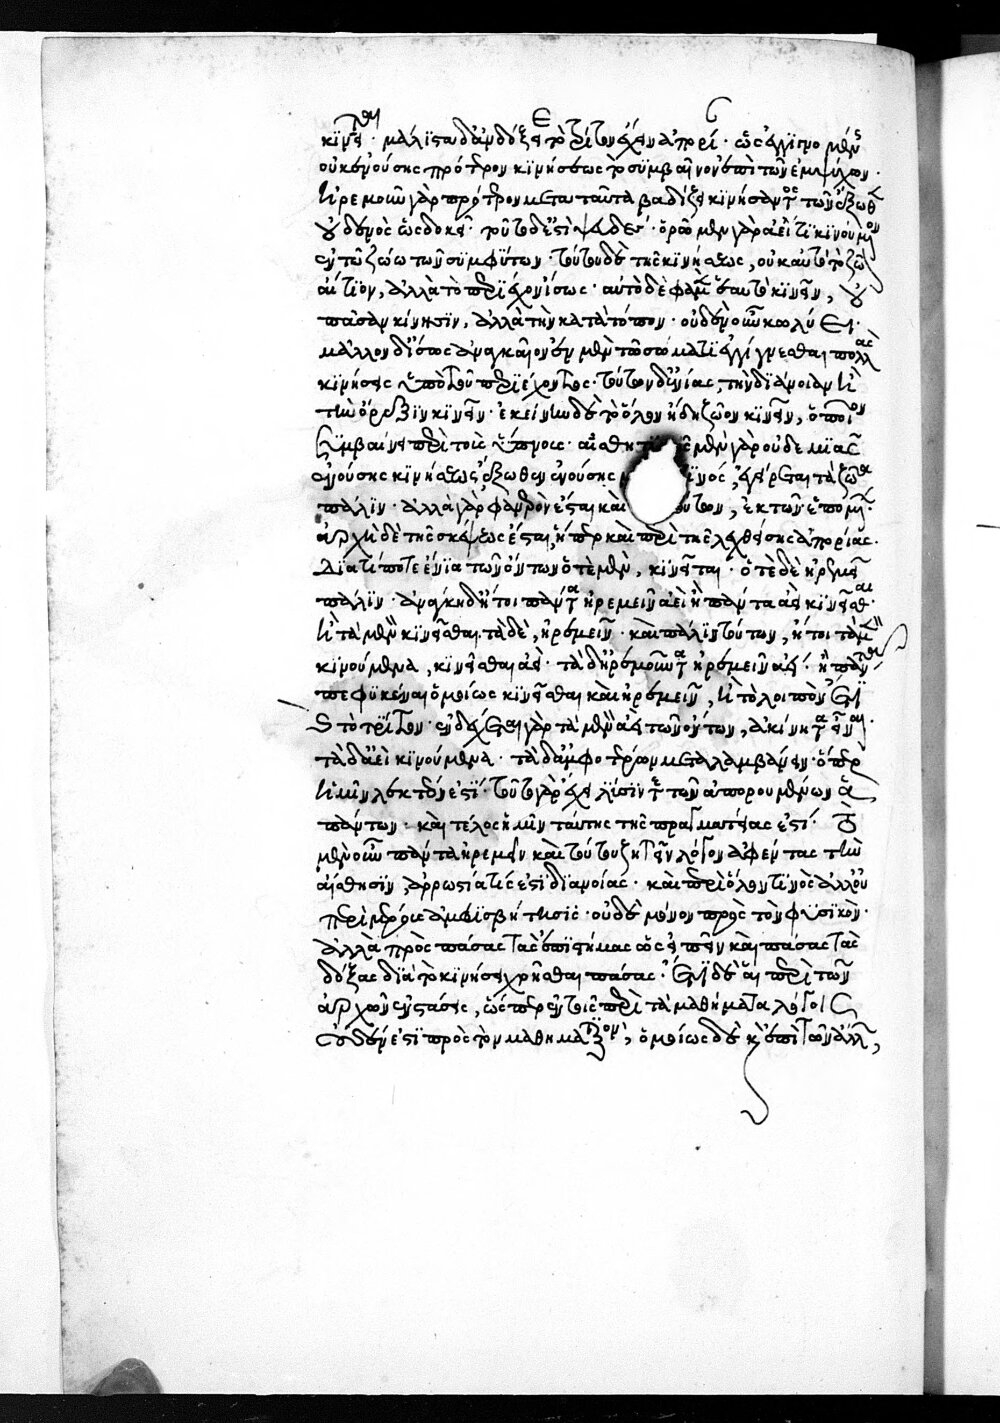 κινεῖσθαι· μάλιστα δ' ἂν δόξειε τὸ τρίτον ἔχειν ἀπορίαν· ὡς ἐγγινομένης
οὐκ ἐνούσης πρότερον κινήσεως τὸ συμβαῖνον ἐπὶ τῶν ἐμψύχων·
ἠρεμοῦν γὰρ πρότερον μετὰ ταῦτα βαδίζει κινήσαντος τῶν ἔξωθεν
οὐδενὸς ὡς δοκεῖ· τοῦτο δ' ἐστὶ ψεῦδος· ὁρῶμεν γὰρ ἀεί τι κινούμενον
ἐν τῷ ζώῳ τῶν συμφύτων· τούτου δὲ τῆς κινήσεως, οὐκ αὐτὸ τὸ ζῶον
αἴτιον, ἀλλὰ τὸ περιέχον ἴσως· αὐτὸ δέ φαμεν ἑαυτὸ κινεῖν, οὐ
πᾶσαν κίνησιν, ἀλλὰ τὴν κατὰ τόπον· οὐδὲν οὖν κωλύει·
μᾶλλον δ' ἴσως ἀναγκαῖον ἐν μὲν τῷ σώματι ἐγγίγνεσθαι πολλὰς
κινήσεις ὑπὸ τοῦ περιέχοντος· τούτων δ' ἐνίας, τὴν διάνοιαν ἢ
τὴν ὄρεξιν κινεῖν· ἐκείνην δὲ τὸ ὅλον ἤδη ζῶον κινεῖν, ὁποῖον
συμβαίνει περὶ τοὺς ὕπνους· αἰσθητικῆς μὲν γὰρ οὐδεμιᾶς
ἐνούσης κινήσεως, ἔξωθεν ἐνούσης ινός, ἐγείρεται τὰ ζῶα
πάλιν· ἀλλὰ γὰρ φανερὸν ἔσται καὶ τούτων, ἐκ τῶν ἑπομένων·
ἀρχὴ δὲ τῆς σκέψεως ἔσται, ἥπερ καὶ περὶ τῆς λεχθείσης ἀπορίας·
διὰ τί ποτε ἔνια τῶν ὄντων ὁτὲ μὲν, κινεῖται· ὁτὲ δὲ ἠρεμεῖ
πάλιν· ἀνάγκη δ' ἤτοι πάντα ἠρεμεῖν ἀεὶ ἢ πάντα ἀεὶ κινεῖσθαι·
ἢ τὰ μὲν κινεῖσθαι τὰ δὲ, ἠρεμεῖν· καὶ πάλιν τούτων, ἤτοι τὰ μὲν
κινούμενα, κινεῖσθαι ἀεί· τὰ δ' ἠρεμοῦντα ἠρεμεῖν ἀεί· ἢ πάντα
πεφυκέναι ὁμοίως κινεῖσθαι καὶ ἠρεμεῖν, ἢ τὸ λοιπὸν ἔτι
τὸ τρίτον· ἐνδέχεται γὰρ τὰ μὲν ἀεὶ τῶν ὄντων, ἀκίνητα εἶναι·
τὰ δ' ἀεὶ κινούμενα· τὰ δ' ἀμφοτέρων μεταλαμβάνειν· ὅπερ
ἡμῖν λεκτέον ἐστί· τοῦτο γὰρ ἔχει λύσιν τε τῶν ἀπορουμένων
πάντων· καὶ τέλος ἡμῖν ταύτης τῆς πραγματείας ἐστί· τὸ
μὲν οὖν πάντα ἠρεμεῖν καὶ τούτου ζητεῖν λόγον ἀφέντας τὴν
αἴσθησιν, ἀρρωστία τίς ἐστι διανοίας· καὶ περὶ ὅλου τινὸς ἀλλ' οὐ
περὶ μέρους ἀμφισβήτησις· οὐδὲ μόνον πρὸς τὸν φυσικόν·
ἀλλὰ πρὸς πάσας τὰς ἐπιστήμας ὡς εἰπεῖν καὶ πάσας τὰς
δόξας διὰ τὸ κινήσει χρῆσθαι πάσας· ἔτι δὲ αἱ περὶ τῶν
ἀρχῶν ἐνστάσεις, ὥσπερ ἐν τοῖς περὶ τὰ μαθήματα λόγοις
οὐδέν εἰσι πρὸς τὸν μαθηματικόν, ὁμοίως δὲ κἀπὶ τῶν ἄλλων,